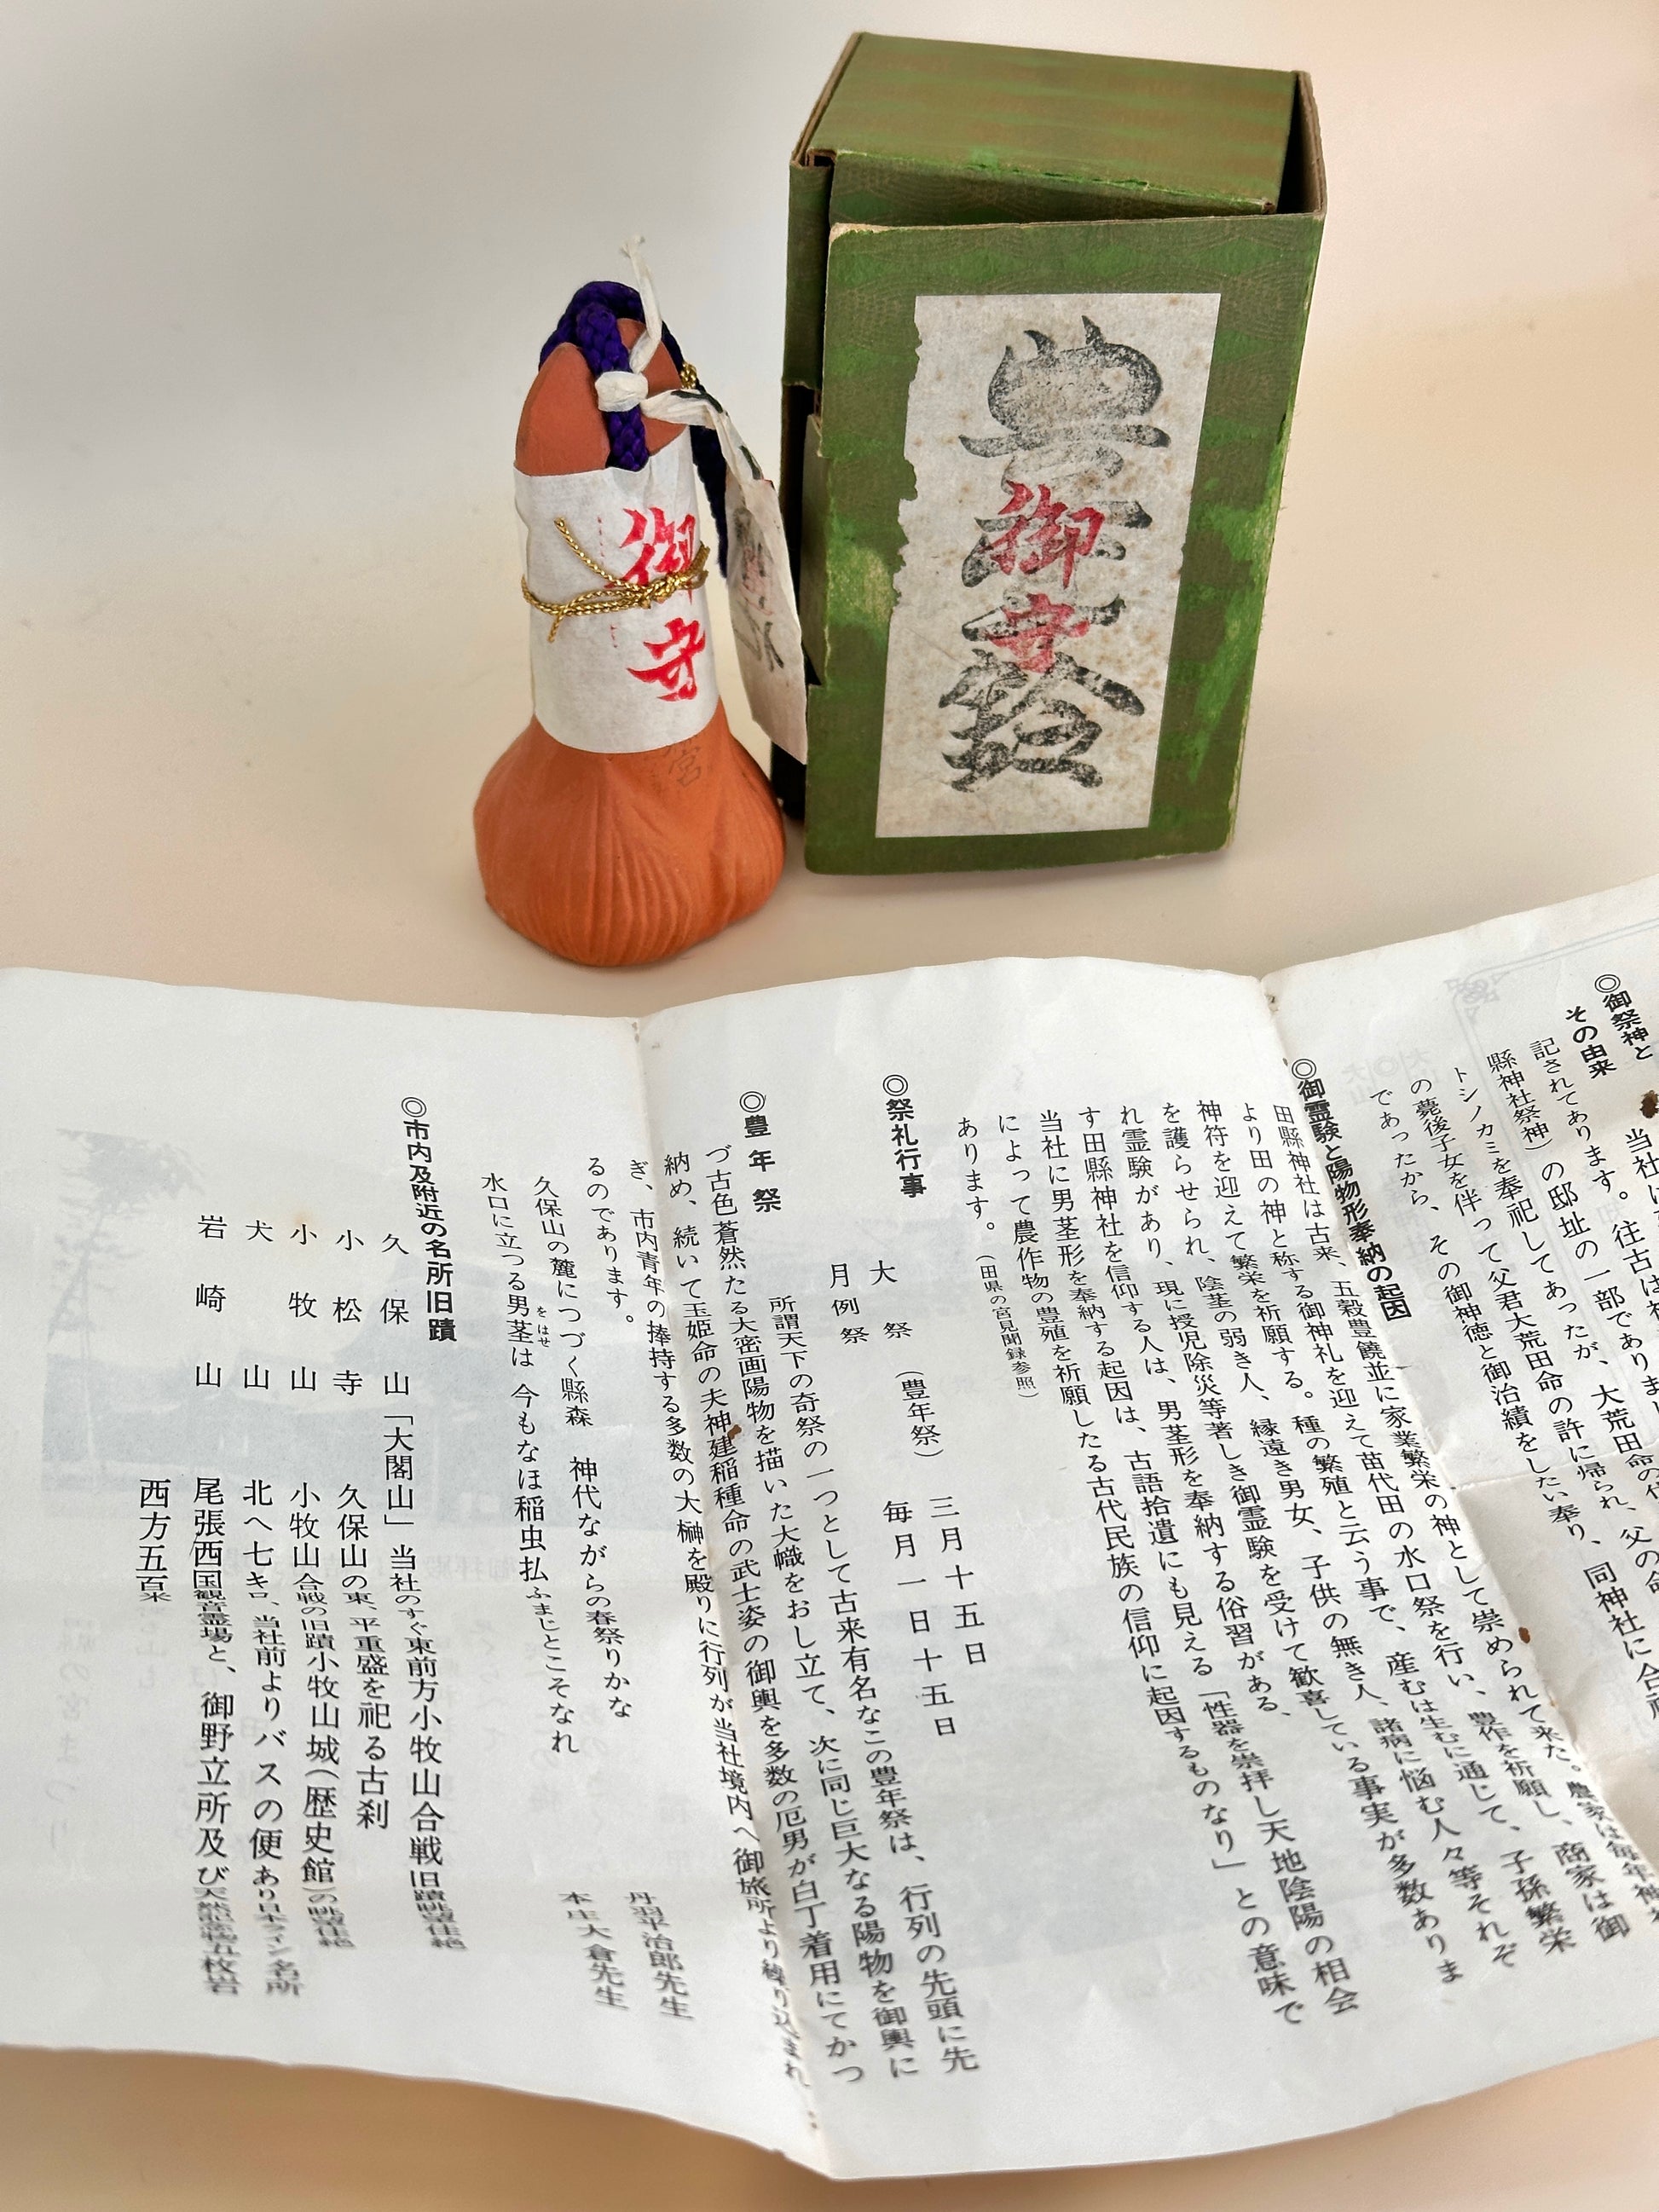 豊年鈴
御守
御守
宮
◎御祭神と
その由来
記されてあります。往古は
縣神社祭神)の邸址の一部でありま
トシノカミを奉祀してあったが、大荒田命の
の薨後子女を伴って父君大荒田命の許に帰られ、父の命
であったから、その御神徳と御治績をしたい奉り、同神社に合祀
◎御霊験と陽物形奉納の起因
田縣神社は古来、五穀豊饒並に家業繁栄の神として崇められて来た。農家は毎年
より田の神と称する御神札を迎えて苗代田の水口祭を行い、豊作を祈願し、商家は御
神符を迎えて繁栄を祈願する。種の繁殖と云う事で、産むは生むに通じて、子孫繁栄
を護らせられ、陰茎の弱き人、縁遠き男女、子供の無き人、諸病に悩む人々等それぞ
れ霊験があり、現に授児除災等著しき御霊験を受けて歓喜している事実が多数ありま
す田縣神社を信仰する人は、男茎形を奉納する俗習がある、
当社に男茎形を奉納する起因は、古語拾遺にも見える「性器を崇拝し天地陰陽の相会
によって農作物の豊殖を祈願したる古代民族の信仰に起因するものなり」との意味で
あります。(田県の宮見聞録参照)
◎祭礼行事
大祭(豊年祭) 三月十五日
月例祭 毎月一日十五日
◎豊年祭
所謂天下の奇祭の一つとして古来有名なこの豊年祭は、行列の先頭に先
づ古色蒼然たる大密画陽物を描いた大幟をおし立て、次に同じ巨大なる陽物を御輿に
納め、続いて玉姫命の夫神建稲種命の武士姿の御輿を多数の厄男が白丁着用にてかつ
ぎ、市内青年の捧持する多数の大榊を殿りに行列が当社境内へ御旅所より練り込まれ
るのであります。
久保山の麓につづく縣森 神代ながらの春祭りかな
丹羽平治郎先生
水口に立つる男茎は 今もなほ稲虫払ふまじとこそなれ
をはせ
本庄大倉先生
◎市内及附近の名所旧蹟
久保山 「大閤山」当社のすぐ東前方小牧山合戦旧蹟眺望佳絶
小松寺 久保山の東、平重盛を祀る古刹
小牧山 小牧山合戦の旧蹟小牧山城(歴史館)の眺望佳絶
犬山 北へ七キロ、当社前よりバスの便あり日本ライン名所
岩崎山 尾張西国観音霊場と、御野立所及び天然記念物五枚岩
西方五百米